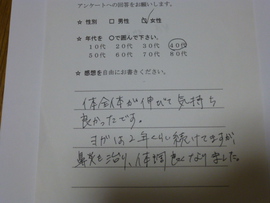 アンケートへの回答をお願いします。
☆ 性別 □ 男性 ☑ 女性
☆ 年代を○で囲んで下さい。
10代 20代 30代 40代
50代 60代 70代 80代
☆ 感想を自由にお書きください。
体全体が伸びて気持ち
良かったです。
ヨガは2年くらい続けてますが、
鼻炎も治り、体調良くなりました。